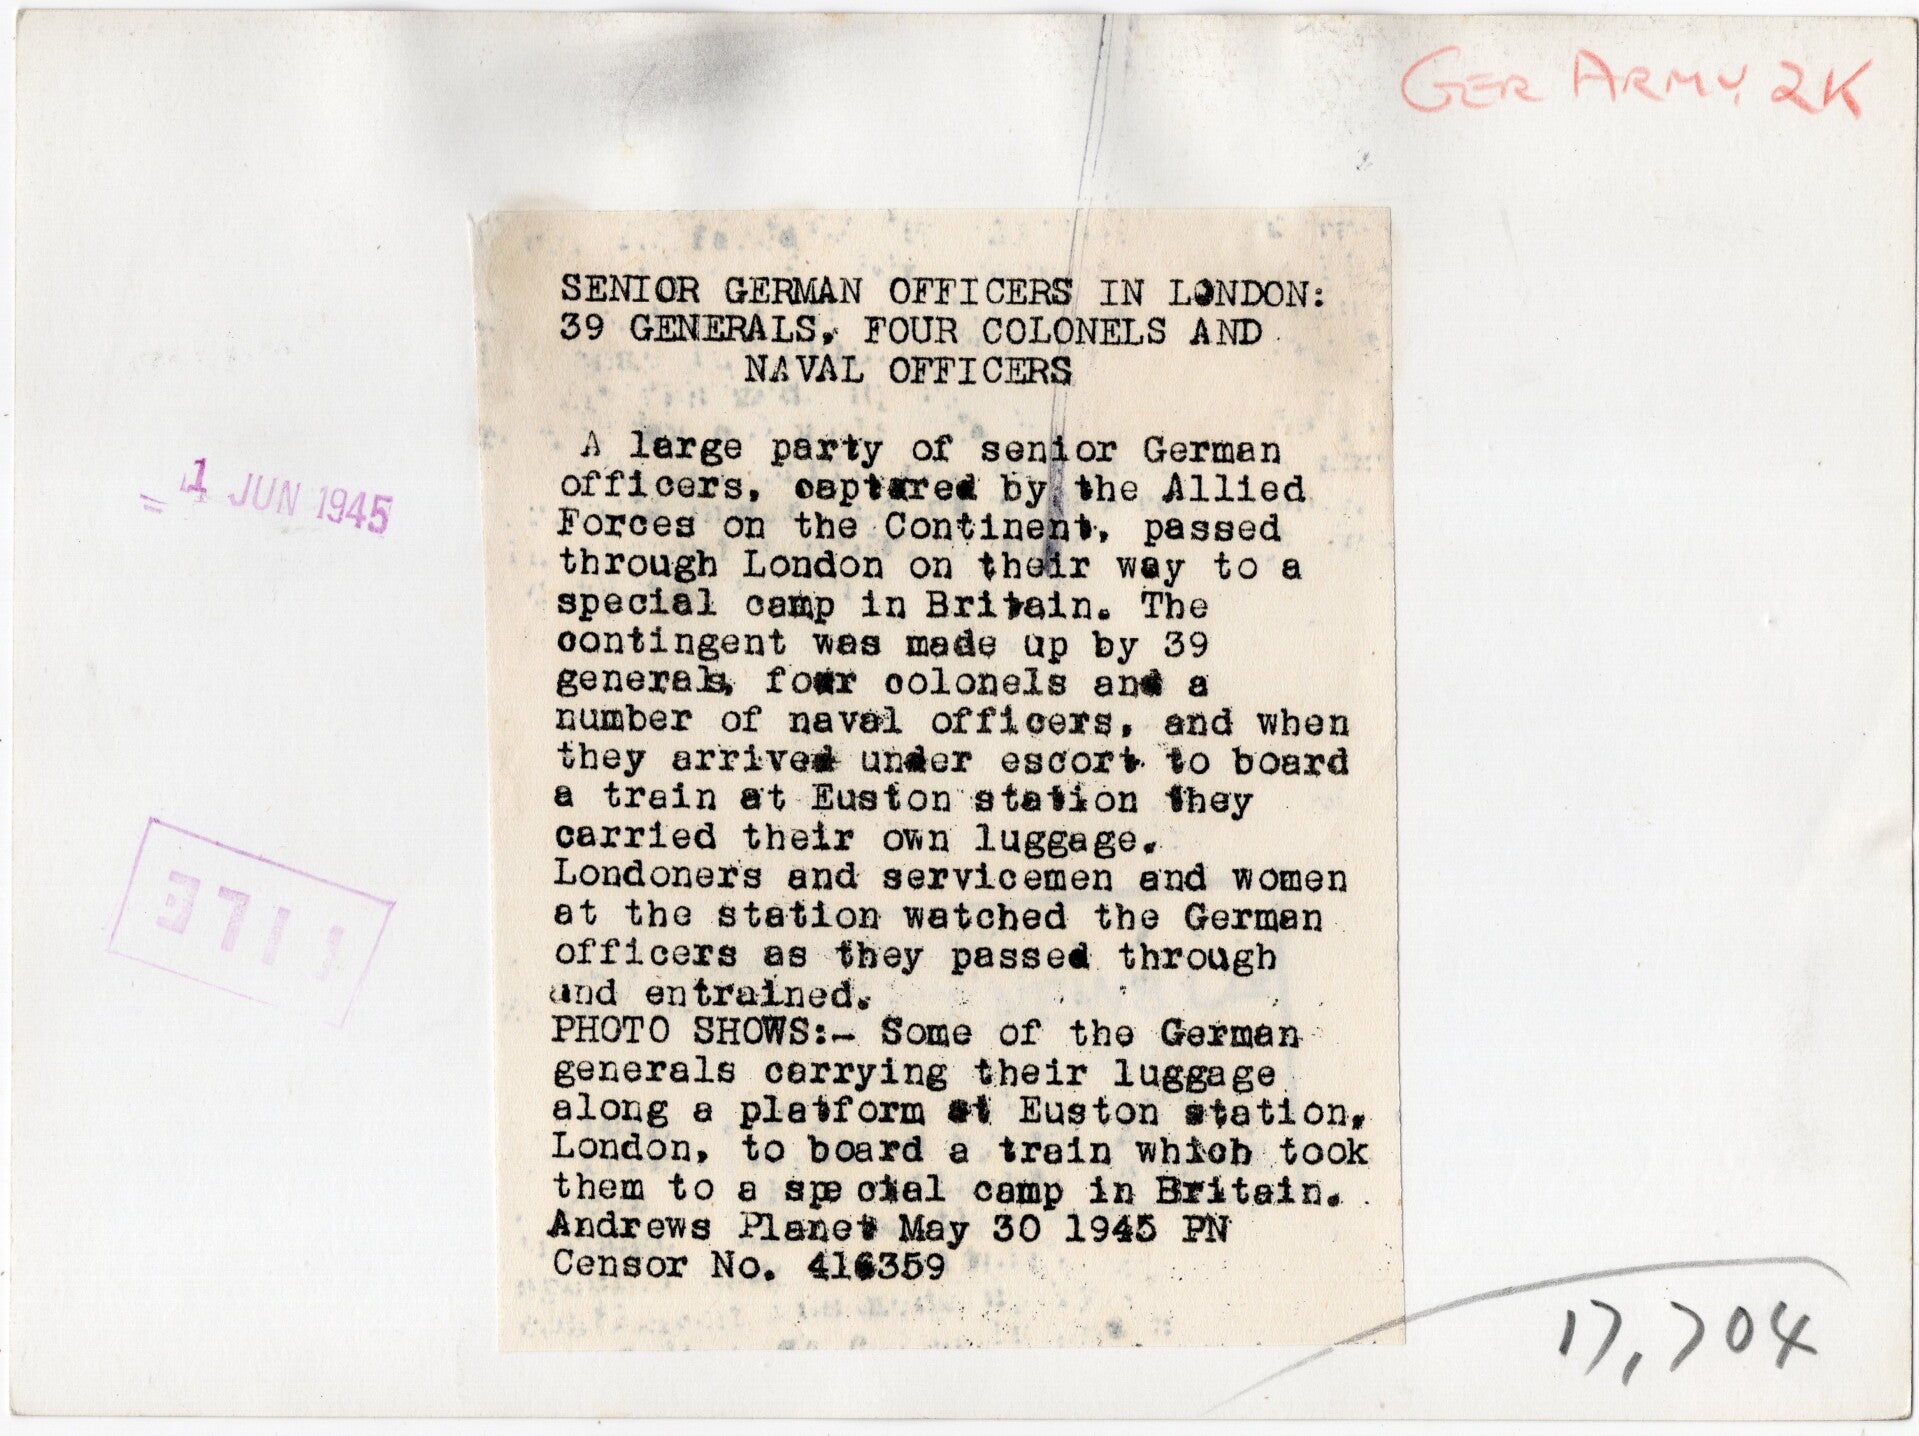 GER ARMY 2K
SENIOR GERMAN OFFICERS IN LONDON:
39 GENERALS, FOUR COLONELS AND
NAVAL OFFICERS
A large party of senior German
officers, captured by the Allied
Forces on the Continent, passed
through London on their way to a
special camp in Britain. The
contingent was made up by 39
generals, four colonels and a
number of naval officers, and when
they arrived under escort to board
a train at Euston station they
carried their own luggage.
Londoners and servicemen and women
at the station watched the German
officers as they passed through
and entrained.
PHOTO SHOWS:- Some of the German
generals carrying their luggage
along a platform at Euston station,
London, to board a train which took
them to a special camp in Britain.
Andrews Planet May 30 1945 PN
Censor No. 416359
= 1 JUN 1945
FILE
17,704